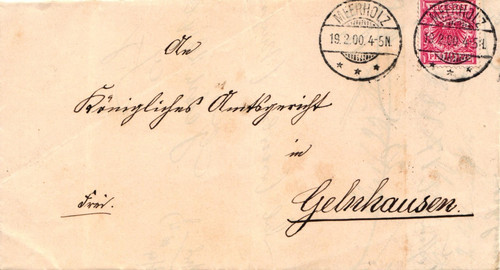 MEERHOLZ
19.2.00.4-5N.
MEERHOLZ
19.2.00.4-5N.
An
Königliches Amtsgericht
in
Frei.
Gelnhausen.